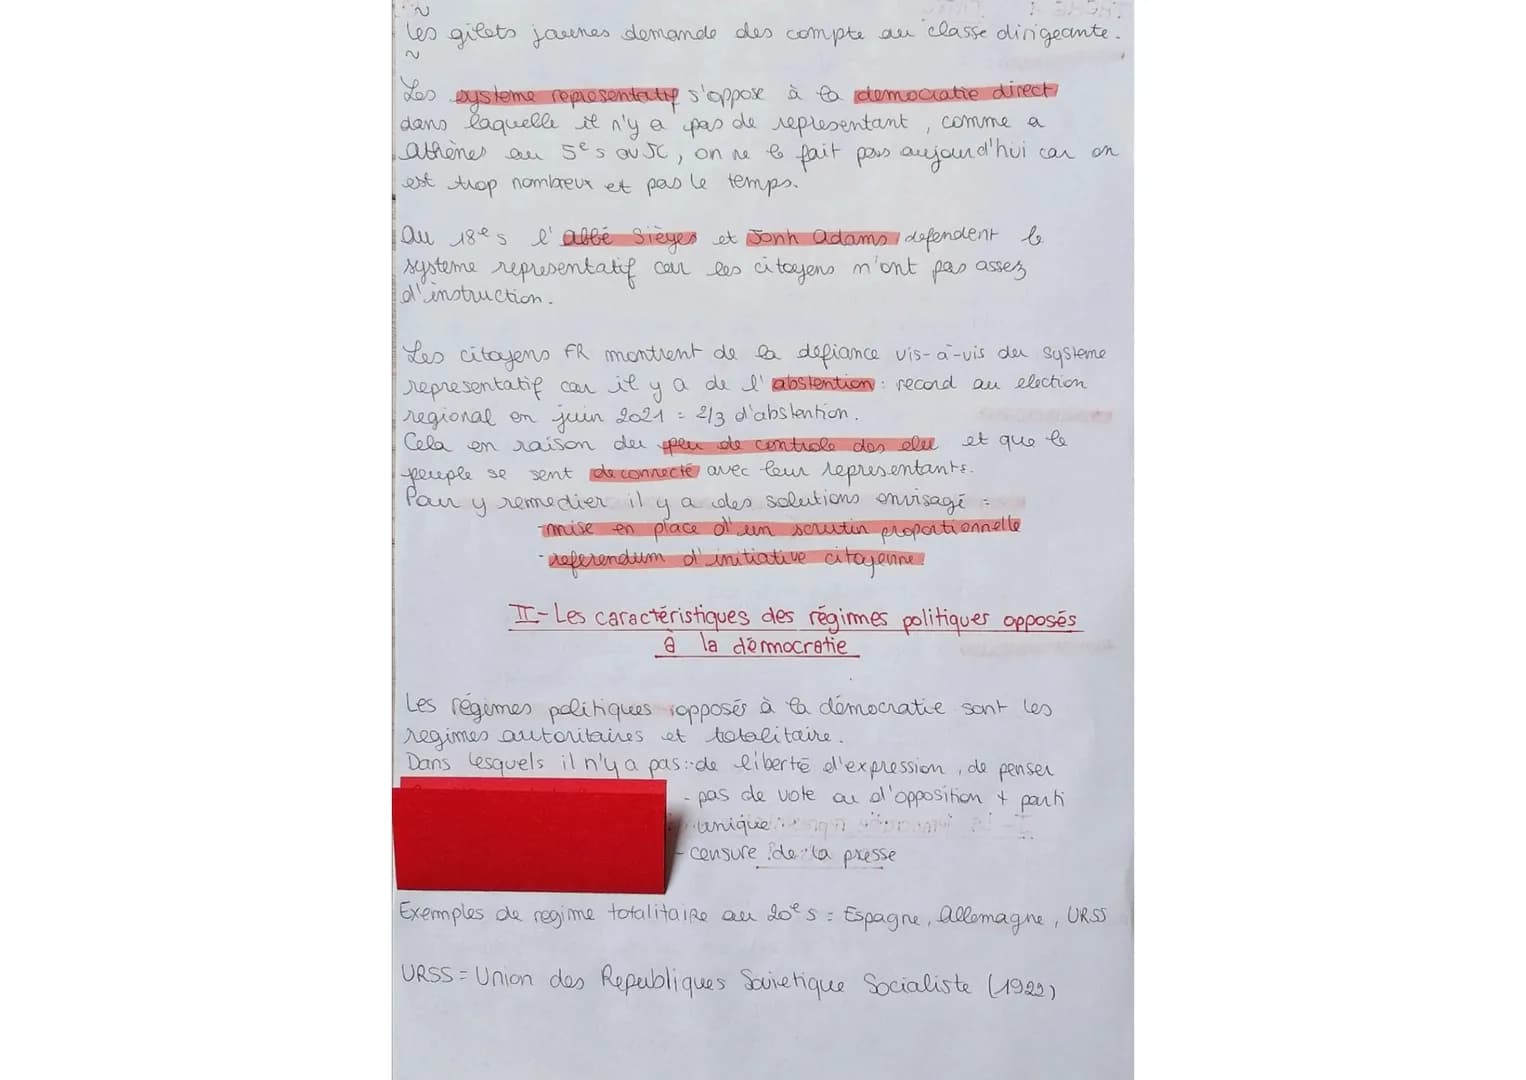 les gilets jaunes demande des compte au classe dirigeante.
Les systeme representatif s'oppose à la democratie direct
dans laquelle il n'y a pas de representant, comme a
athènes au 5e s av JC, on ne le fait pas aujourd'hui car on
est trop nombreux et pas le temps.
Au 18e s l'abbé Sièyes et Jonh Adams defendent le
systeme representatif car les citoyens n'ont pas assez
d'instruction.
Les citoyens FR montrent de la défiance vis-à-vis du systeme
representatif car il y a de l'abstention : record au election
regional en juin 2021 = 2/3 d'abstention.
Cela en raison du peu de controle des elu et que le
peuple se sent deconnecté avec leur representants.
Pour y remedier il y a des solutions envisagé =
-mise en place d'un scrutin proportionnelle
-referendum d'initiative citoyenne
II-Les caractéristiques des régimes politiques opposés
à la démocratie
Les régimes politiques opposés à la démocratie sont les
regimes autoritaires et totalitaire.
Dans lesquels il n'y a pas:-de liberté d'expression, de penser
- pas de vote ou d'opposition + parti
unique
- censure de la presse
Exemples de regime totalitaire au 20e s = Espagne, Allemagne, URSS
URSS = Union des Republiques Sovietique Socialiste (1922)